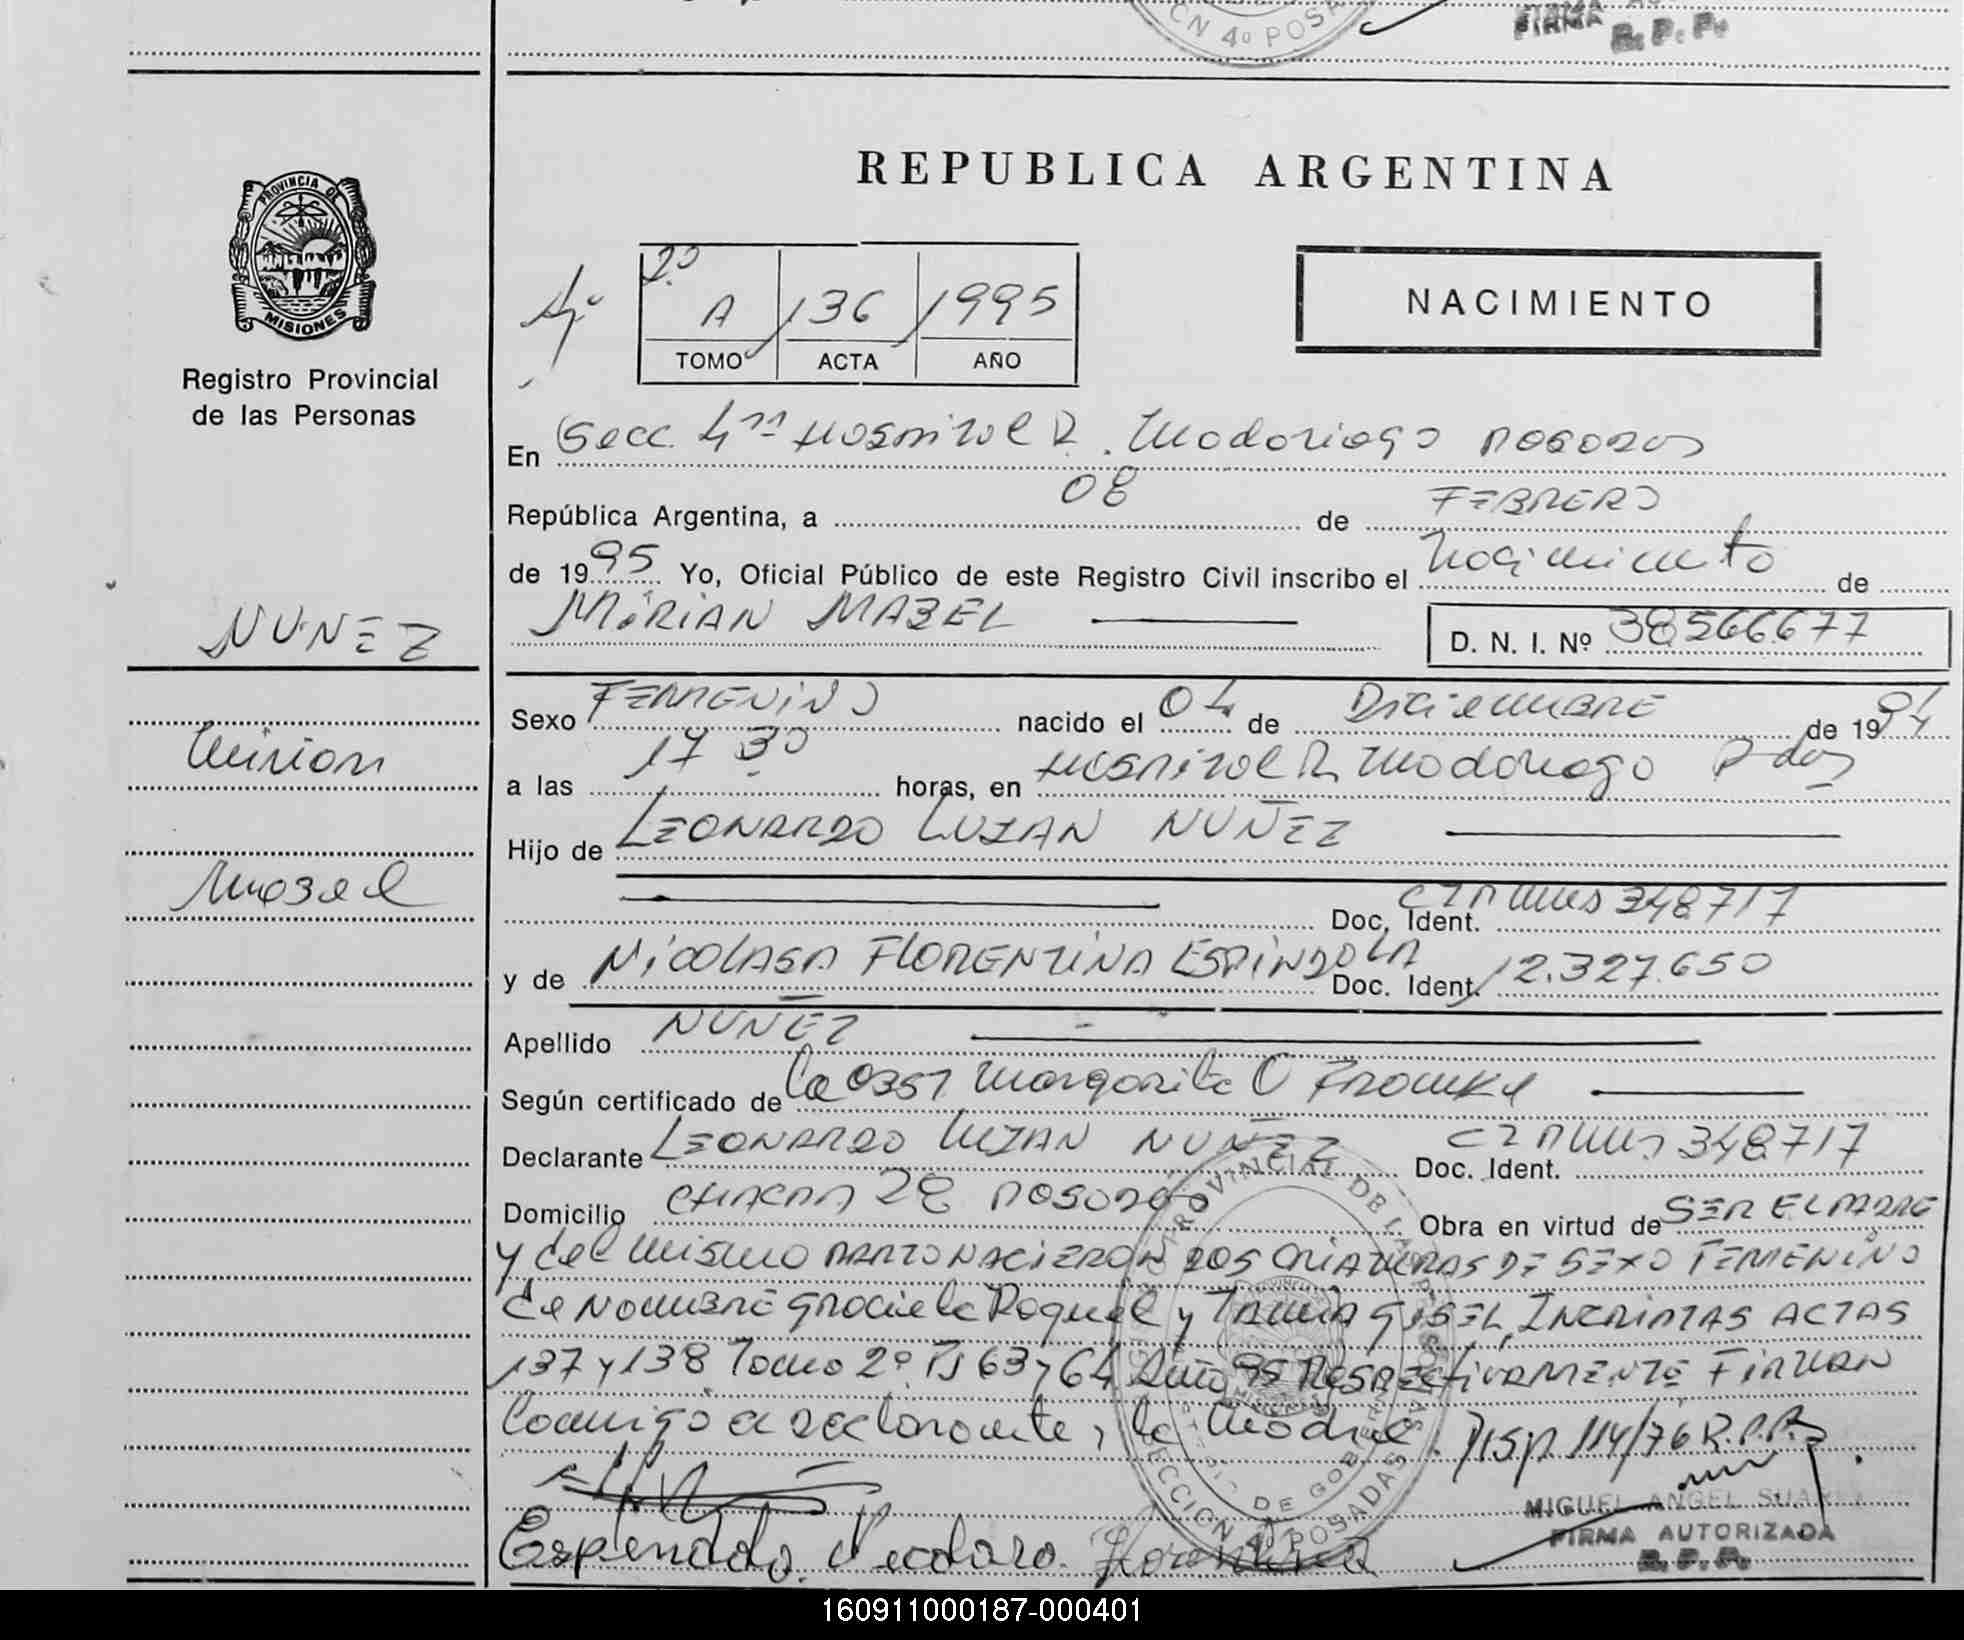 CN 4º POSA
FIRMA
R. P. P.
REPUBLICA ARGENTINA
PROVINCIA DE
MISIONES
Registro Provincial
de las Personas
2º
A 136 1995
TOMO ACTA AÑO
NACIMIENTO
En Secc. 4ta Hospital R. Madariaga Posadas
República Argentina, a 08 de FEBRERO
de 1995 Yo, Oficial Público de este Registro Civil inscribo el Nacimiento de
MIRIAN MABEL
D. N. I. Nº 38566677
NUNEZ
Mirian
Mabel
Sexo FEMENINO nacido el 04 de DICIEMBRE de 1994
a las 17 30 horas, en Hospital R. Madariaga Pdas
Hijo de LEONARDO LUJAN NUÑEZ
Doc. Ident. 348717
y de NICOLASA FLORENTINA ESPINDOLA Doc. Ident. 12.327.650
Apellido NUÑEZ
Según certificado de la Obst Margarita O
Declarante LEONARDO LUJAN NUÑEZ Doc. Ident. 348717
Domicilio CHACRA 28 Posadas Obra en virtud de SER EL PADRE
y del mismo PARTO NACIERON DOS CRIATURAS DE SEXO FEMENINO
de NOMBRE Graciela Raquel y TAMIA GISEL, INCRIPTAS ACTAS
137 y 138 Tomo 2º Fs 63 y 64 Año 95 RESPECTIVAMENTE FIRMAN
Conmigo el declarante y la Madre. Disp. 114/76 R.P.P.
MIGUEL ANGEL SUAREZ
FIRMA AUTORIZADA
R. P. P.
SECCION 4º POSADAS
160911000187-000401